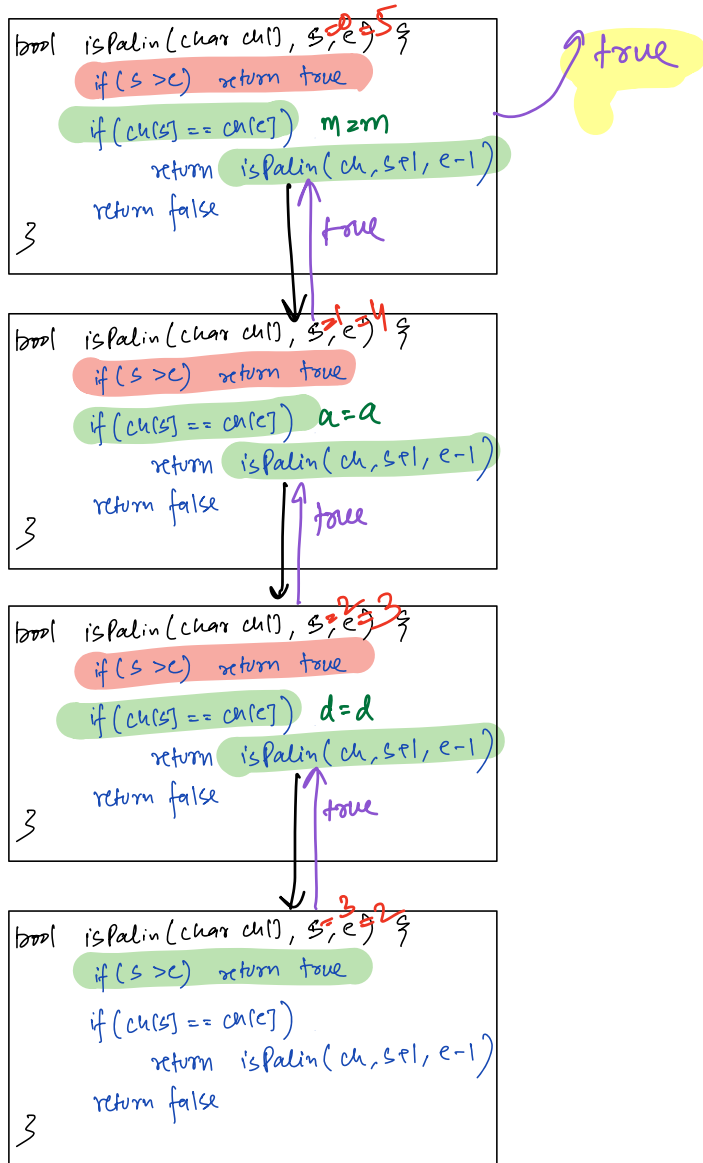 bool isPalin(char ch[], s=0, e=5) {
if (s > e) return true
true
if (ch[s] == ch[e]) m=m
return isPalin(ch, s+1, e-1)
return false
true
}
bool isPalin(char ch[], s=1, e=4) {
if (s > e) return true
if (ch[s] == ch[e]) a=a
return isPalin(ch, s+1, e-1)
return false
true
}
bool isPalin(char ch[], s=2, e=3) {
if (s > e) return true
if (ch[s] == ch[e]) d=d
return isPalin(ch, s+1, e-1)
return false
true
}
bool isPalin(char ch[], s=3, e=2) {
if (s > e) return true
if (ch[s] == ch[e])
return isPalin(ch, s+1, e-1)
return false
}